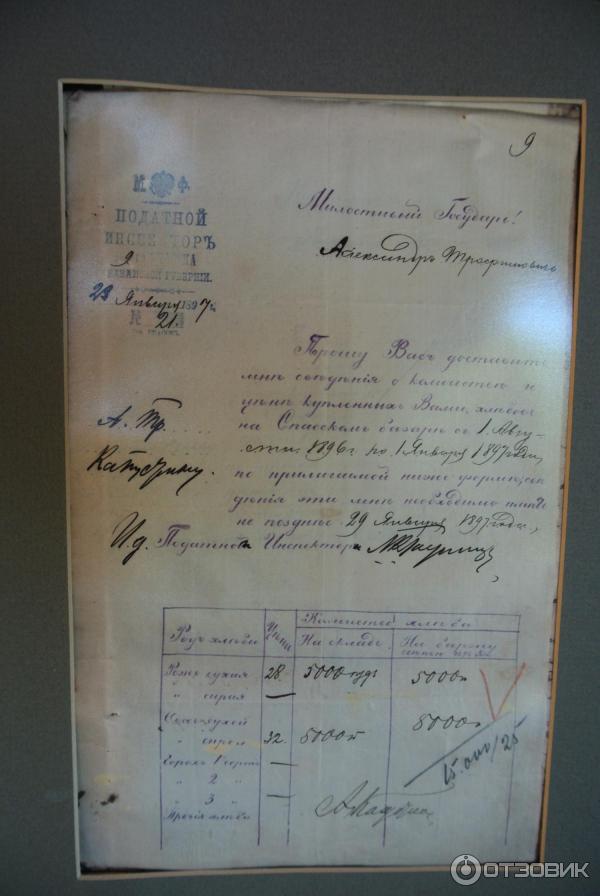 9
М. Ф.
ПОДАТНОЙ
ИНСПЕКТОРЪ
9
КАЗАНСКОЙ ГУБЕРНІИ.
23 Января 1897 г.
№ 21
Милостивый Государь!
Александръ
Прошу Васъ доставить
мнѣ свѣдѣнія о количествѣ и
цѣнѣ купленныхъ Вами хлѣбовъ
на Спасскомъ базарѣ съ 1 Авгу-
ста 1896 г по 1 Января 1897 года,
по прилагаемой ниже формѣ
дѣнія эти мнѣ необходимо имѣть
не позднѣе 29 Января 1897 года.
А. Тр.
Капустину.
И. д. Податной Инспекторъ
Родъ хлѣба
Цѣна
Количество хлѣба
На складѣ
На берегу
Рожь сухая 28. 5000 пудъ 5000 п
" сырая —
8000 п
" сырой 32. 5000 п
Горохъ 1 сортъ —
" 2 "
" 3 " —
Прочіе хлѣба
ОТЗОВИК